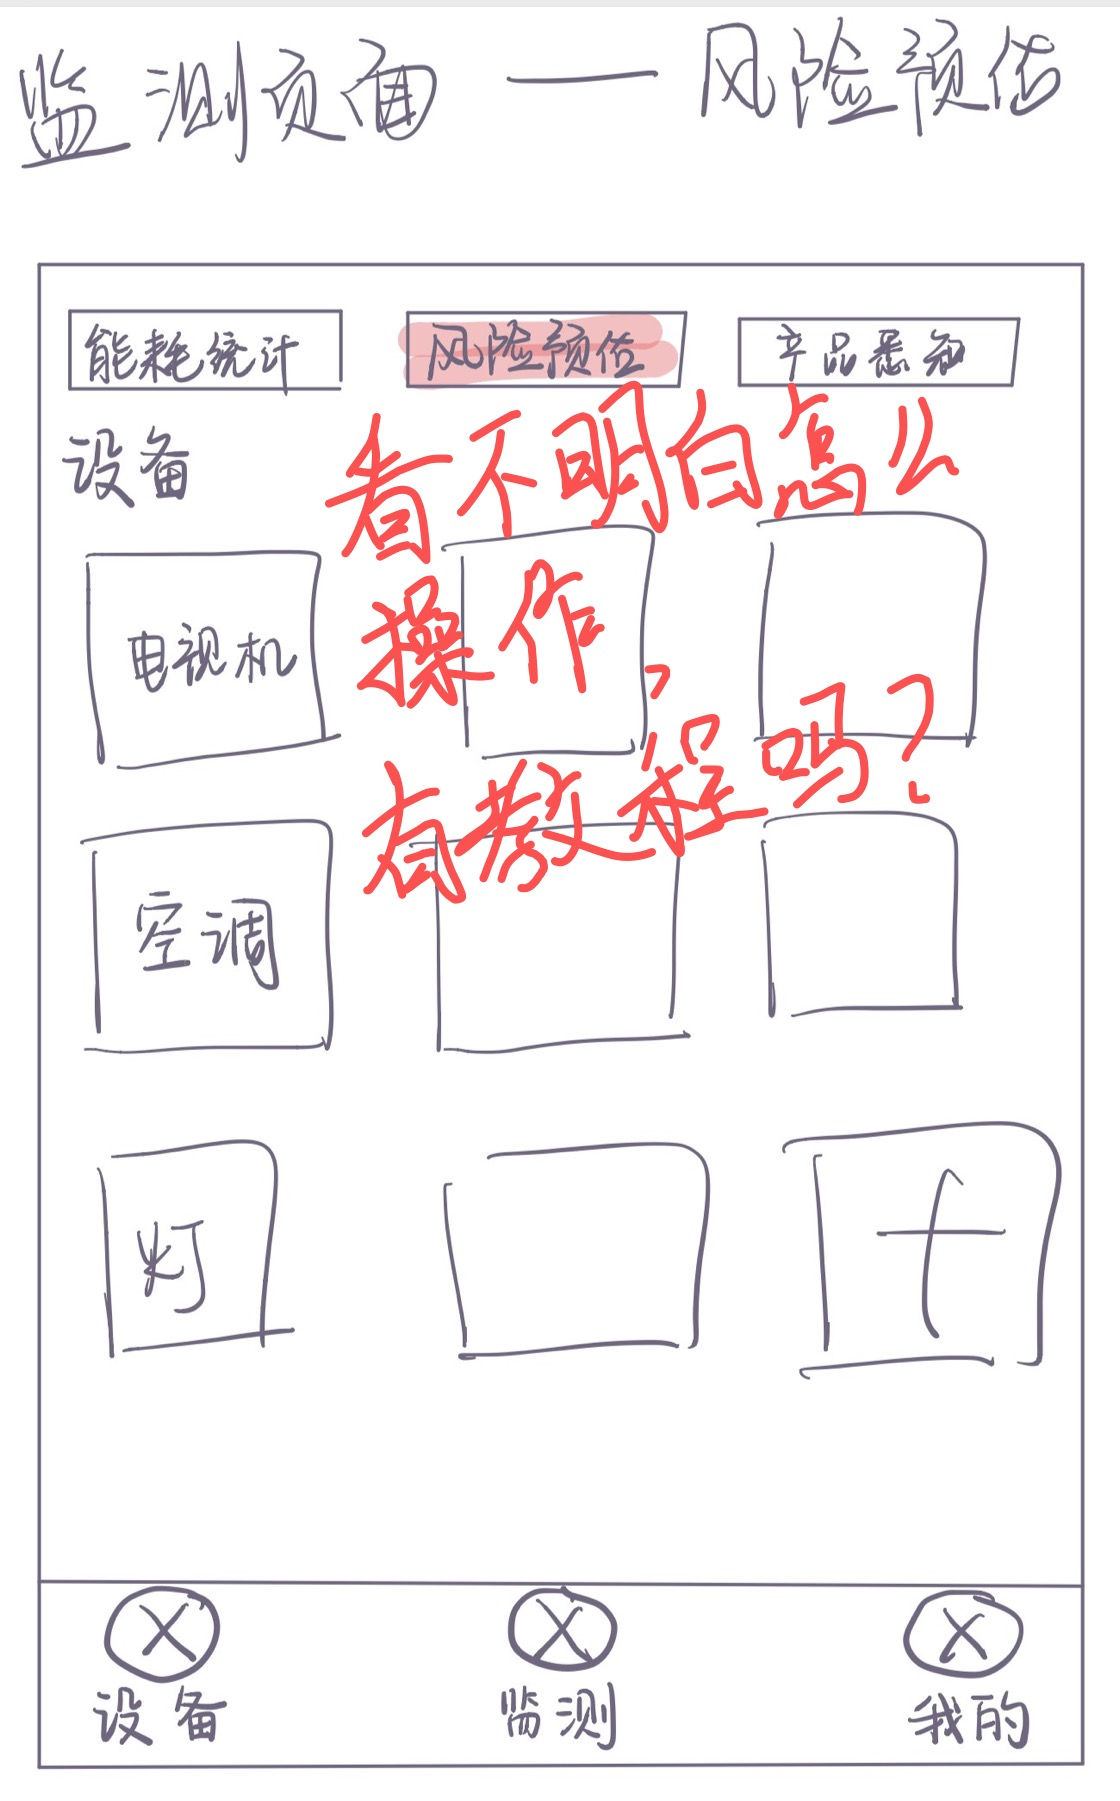 监测页面 —— 风险预估
能耗统计 风险预估 产品悉知
设备
看不明白怎么
操作，
有教程吗？
电视机
空调
灯
设备 监测 我的